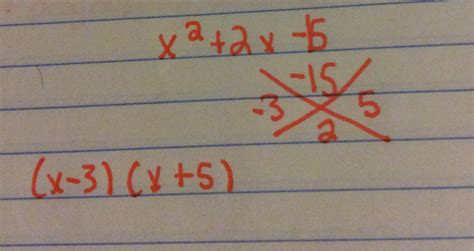 x² + 2x - 15
-15
-3 5
2
(x-3) (x+5)